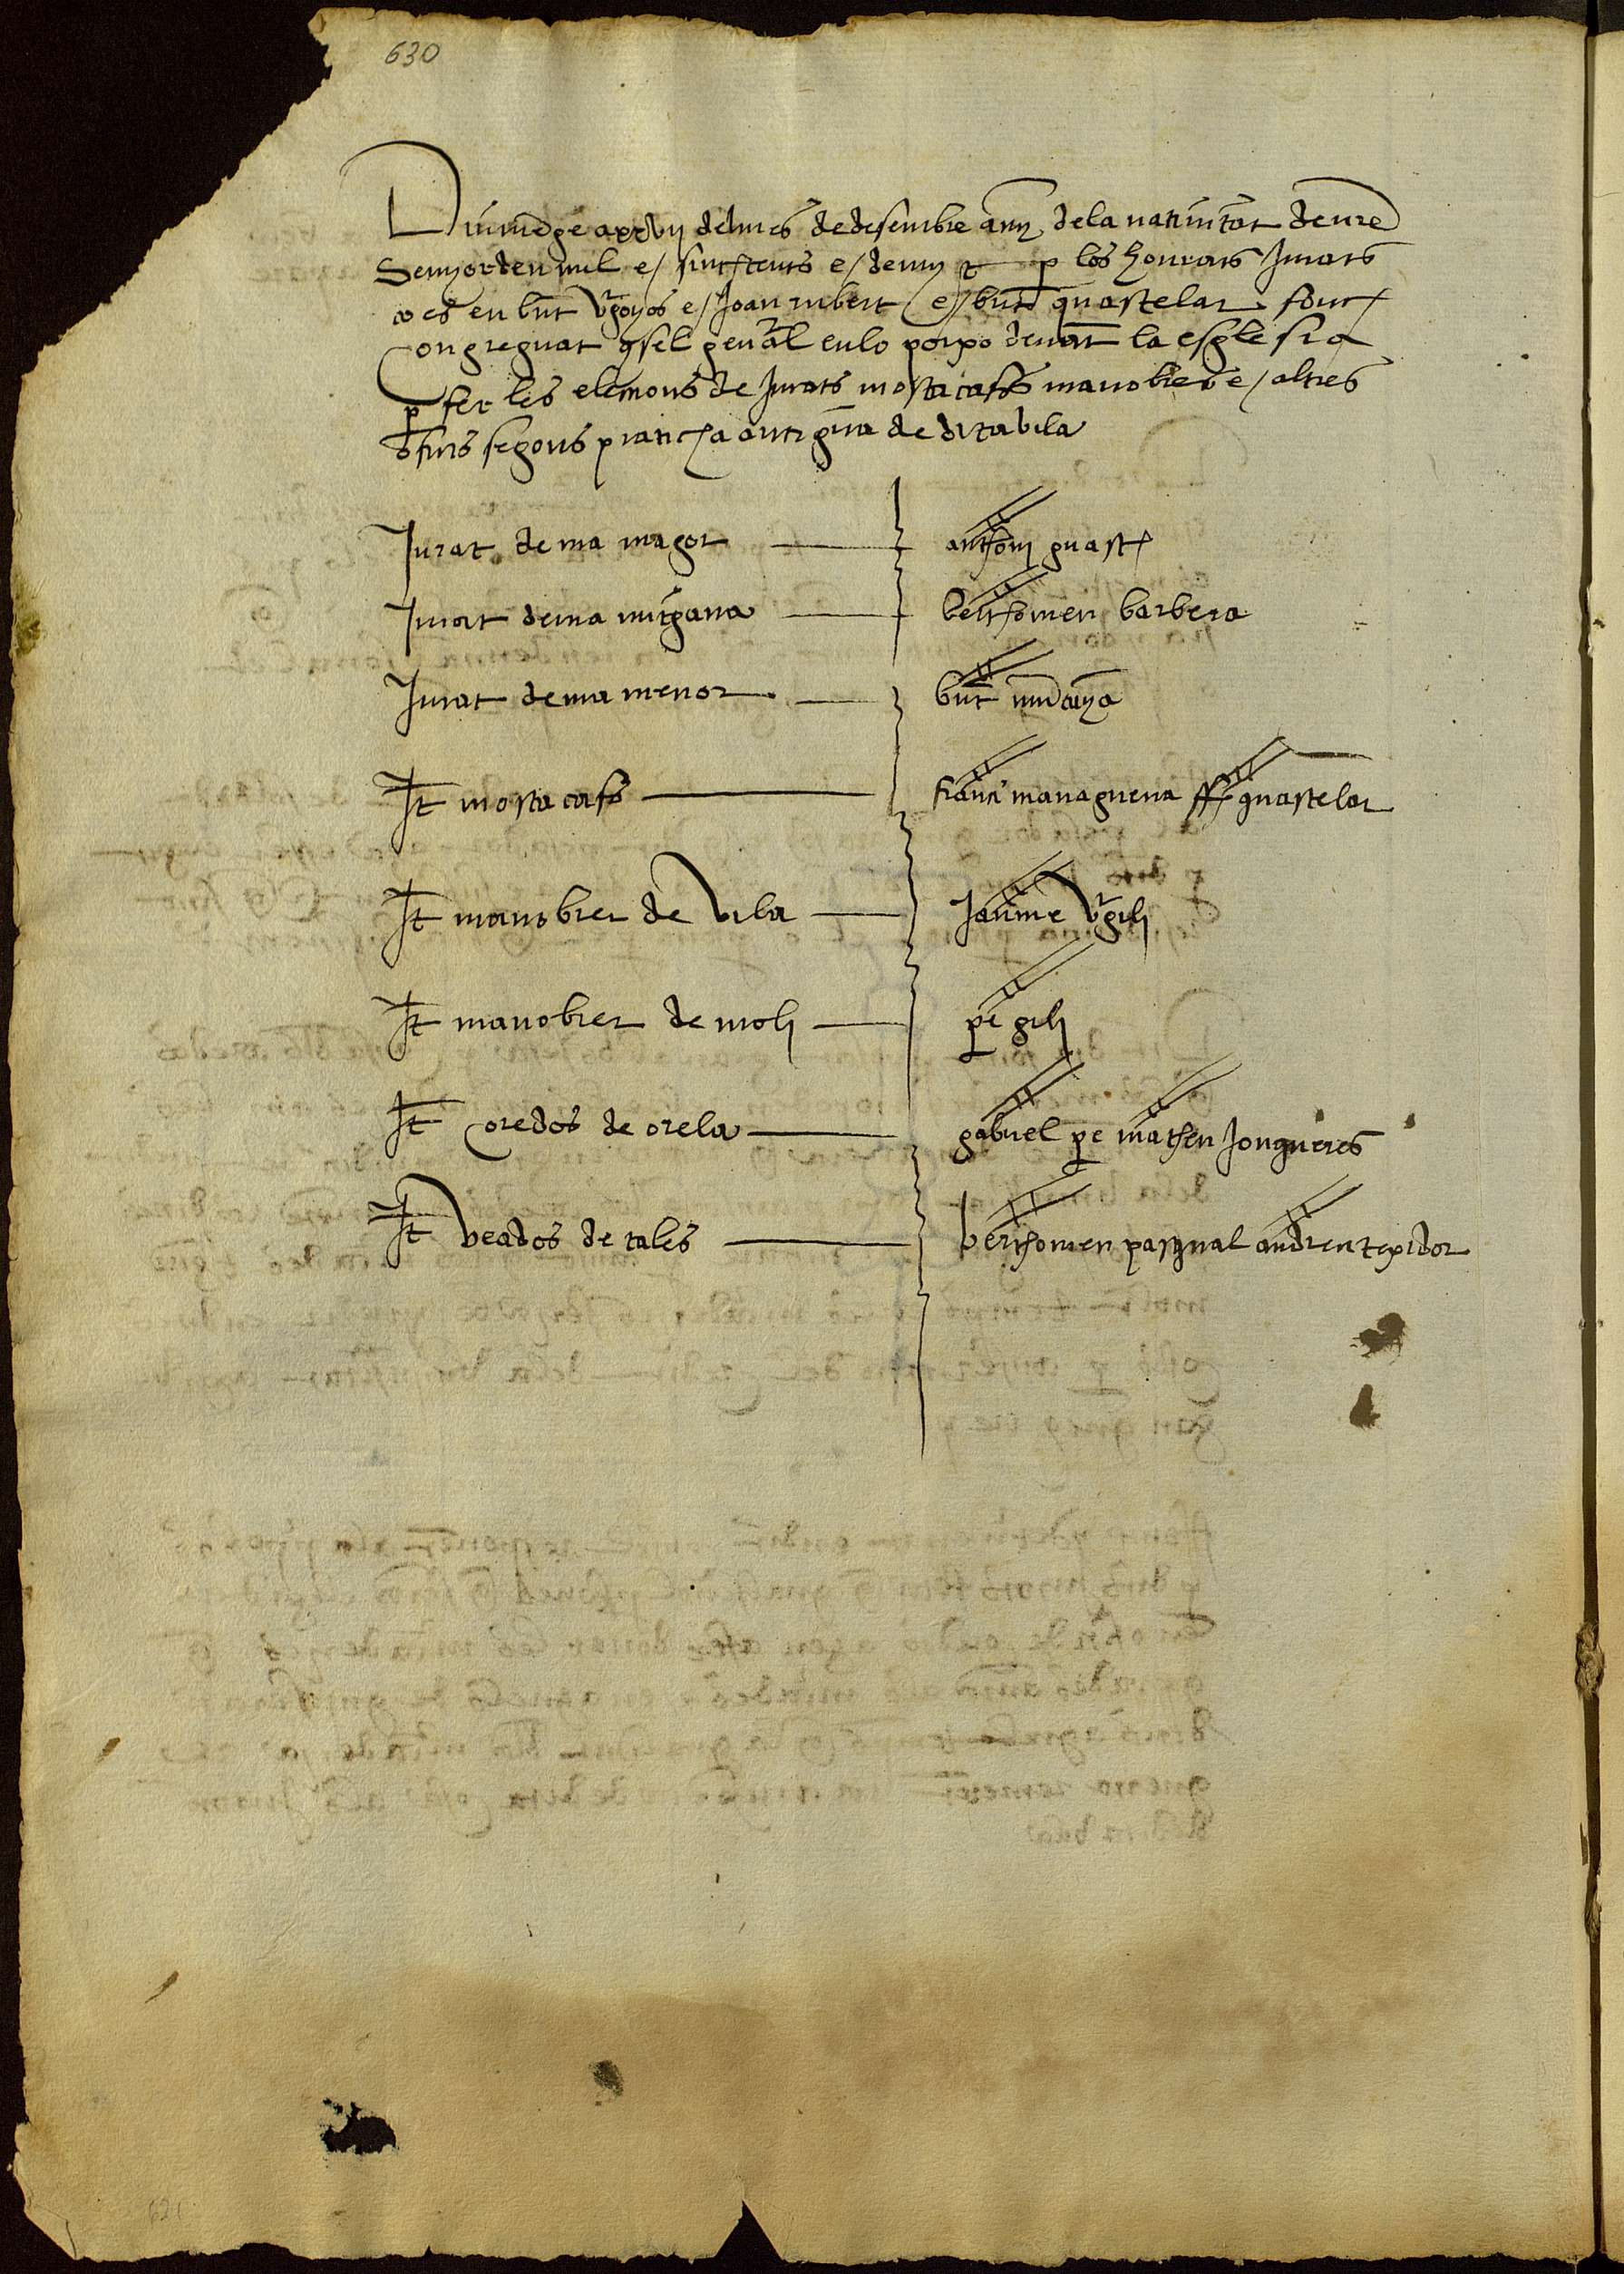 630
Diumẽge a xxvij del mes de desembre any de la natiuitat de nr̃e
Senyor deu mil e / sinchcents e / deu p los honrats Jurats
ço es en bñt vgoyos e / Joan rubert e / bñt quastelar fonch
Congreguat qsel geñal en lo porxo deuãt la esglesia
p fer les elections de Jurats mostacaffs manobrers e / altres
offisis segons praticha antigua de dita vila
Jurat de ma magor anthoni guasch
Jurat de ma mitgana berthomeu barbera
Jurat de ma menor bñt
It mostacaff franci managuera quastelar
It manobrer de vila Jaume vgili
It manobrer de moli pe gili
It Coredos de orela gabriel pe matheu Jonqueres
It veados de tales berthomeu pasqual andreu texidor